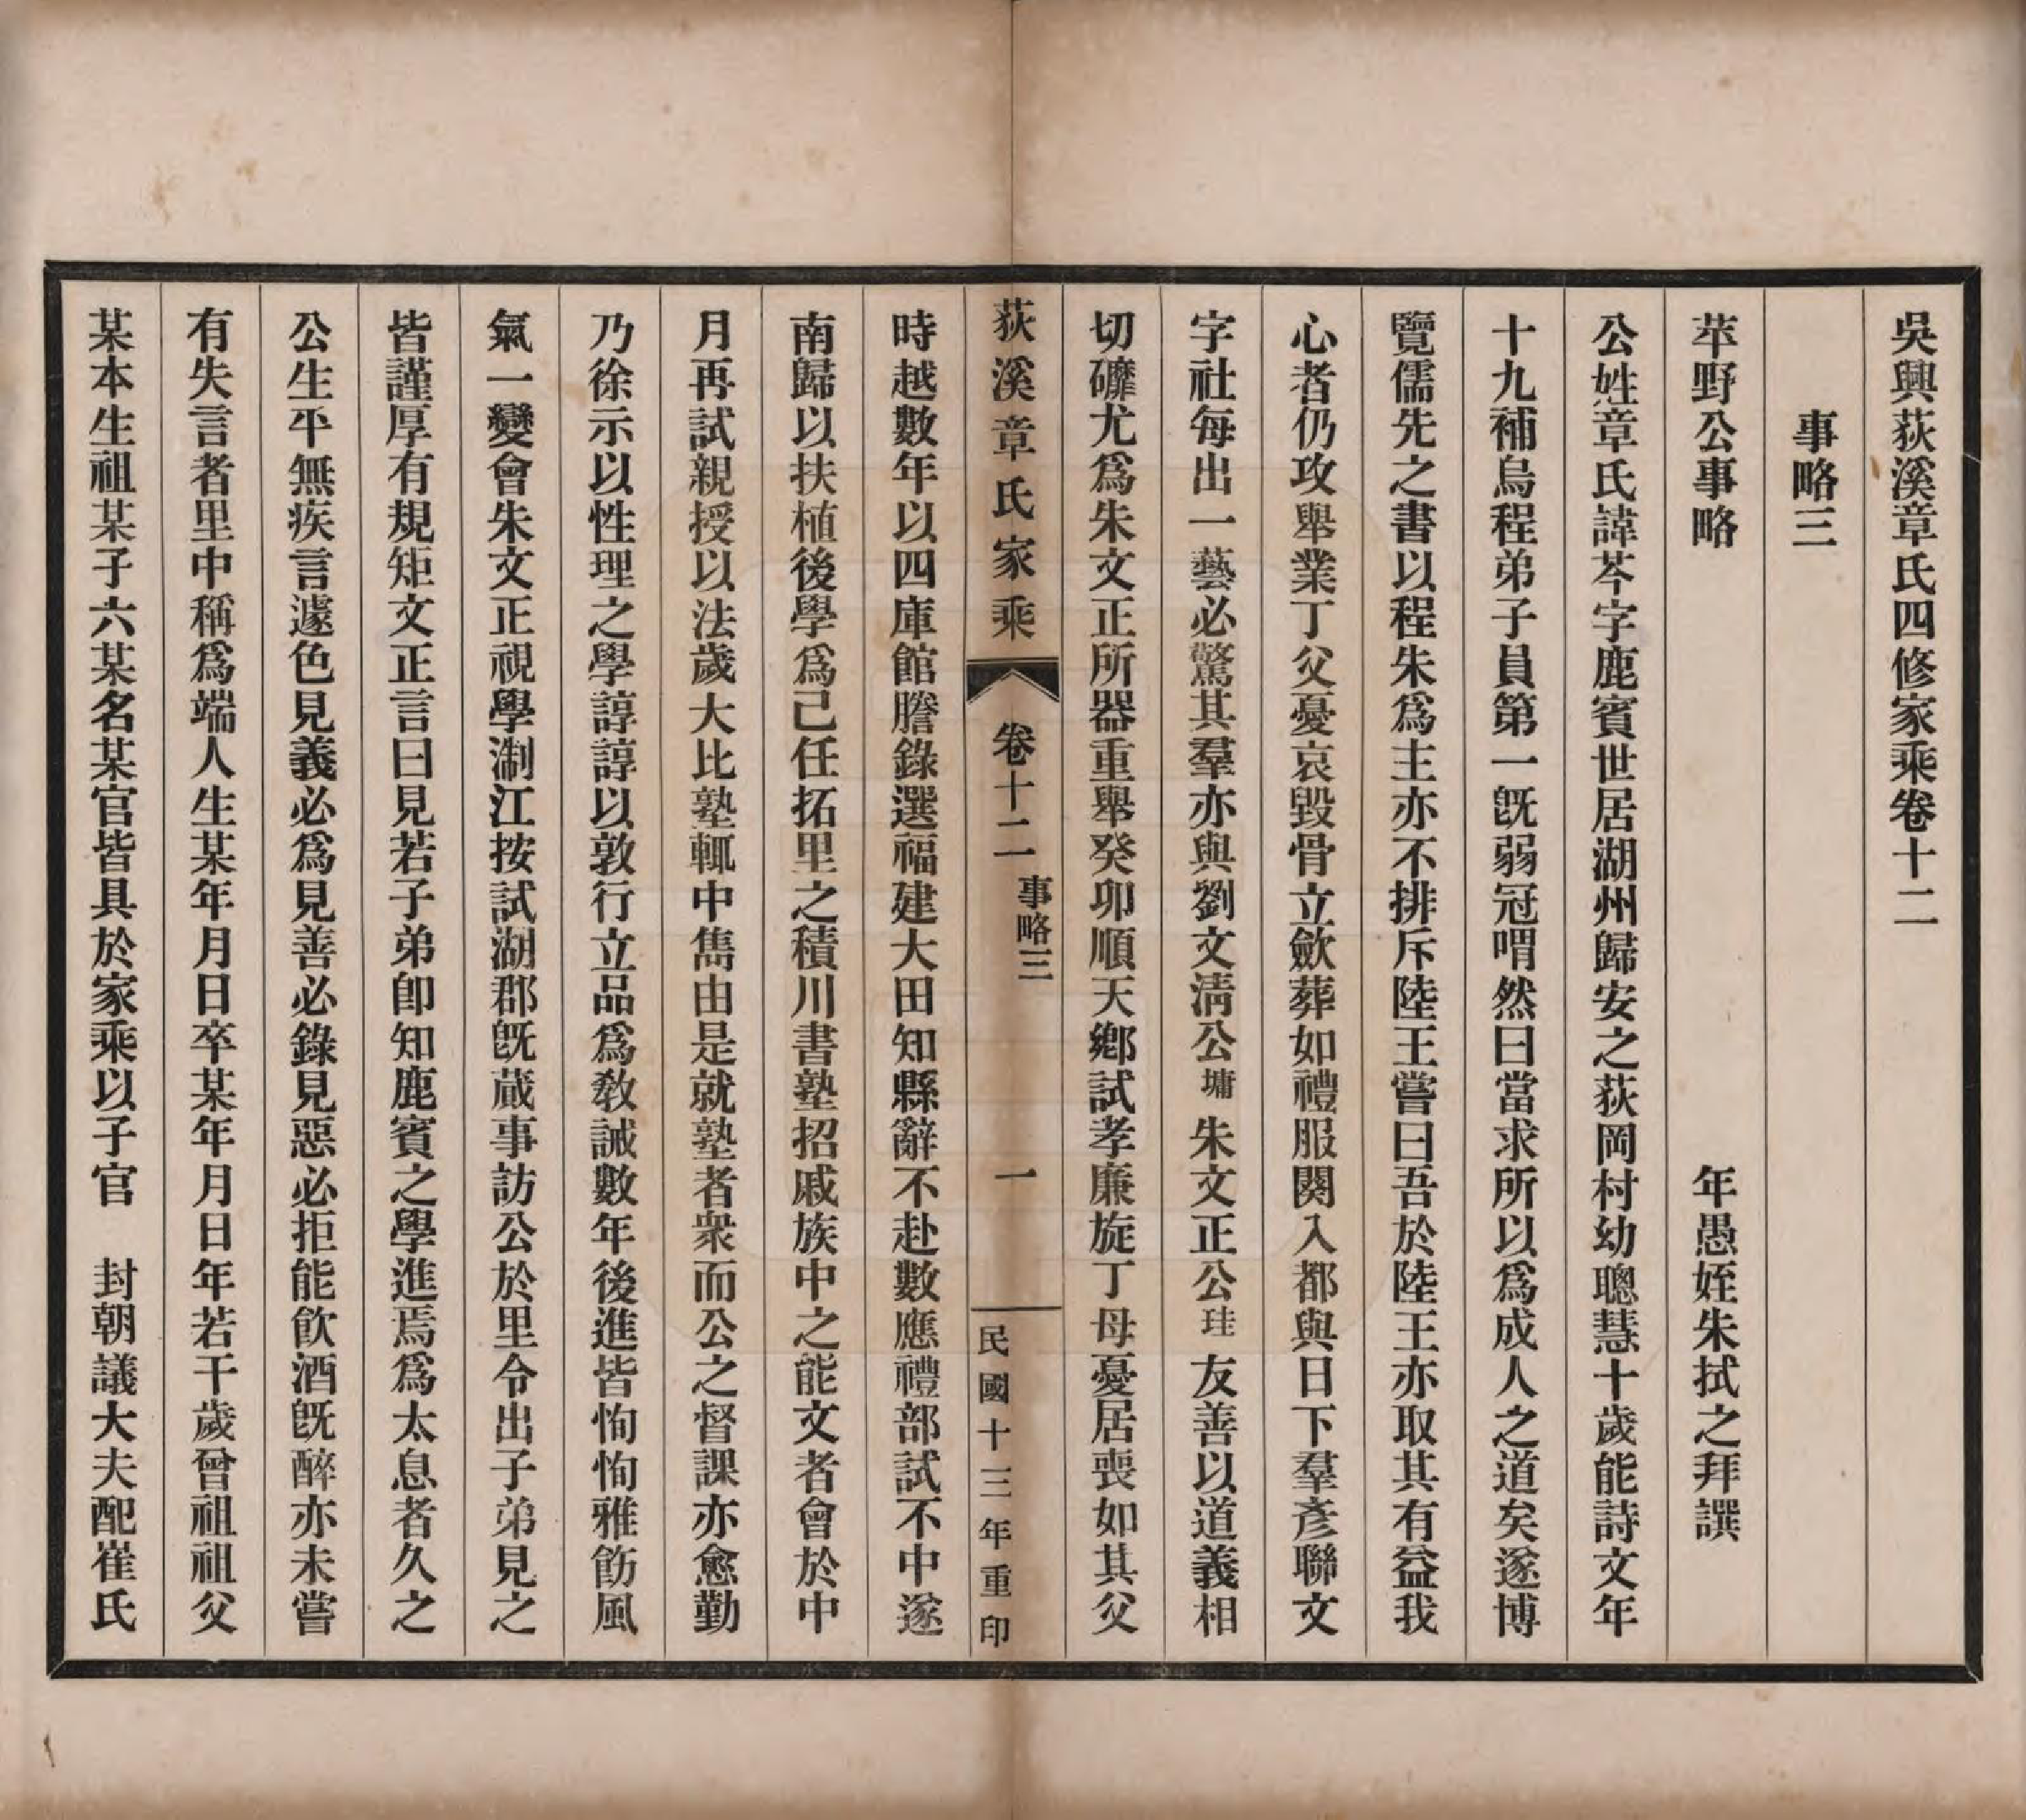 吳興荻溪章氏四修家乘卷十二
事略三
苹野公事略　年愚姪朱拭之拜譔
公姓章氏諱芩字鹿賓世居湖州歸安之荻岡村幼聰慧十歲能詩文年
十九補烏程弟子員第一既弱冠喟然曰當求所以爲成人之道矣遂博
覽儒先之書以程朱爲主亦不排斥陸王嘗曰吾於陸王亦取其有益我
心者仍攻舉業丁父憂哀毀骨立歛葬如禮服闋入都與日下羣彥聯文
字社每出一藝必驚其羣亦與劉文淸公墉朱文正公珪友善以道義相
切礳尤爲朱文正所器重舉癸卯順天鄉試孝廉旋丁母憂居喪如其父
荻溪章氏家乘　卷十二　事略三　一　民國十三年重印
時越數年以四庫館謄錄選福建大田知縣辭不赴數應禮部試不中遂
南歸以扶植後學爲己任拓里之積川書塾招戚族中之能文者會於中
月再試親授以法歲大比塾輒中雋由是就塾者衆而公之督課亦愈勤
乃徐示以性理之學諄諄以敦行立品爲敎誡數年後進皆恂恂雅飭風
氣一變會朱文正視學淛江按試湖郡既蕆事訪公於里令出子弟見之
皆謹厚有規矩文正言曰見若子弟卽知鹿賓之學進焉爲太息者久之
公生平無疾言遽色見義必爲見善必錄見惡必拒能飮酒既醉亦未嘗
有失言者里中稱爲端人生某年月日卒某年月日年若干歲曾祖祖父
某本生祖某子六某名某官皆具於家乘以子官　封朝議大夫配崔氏